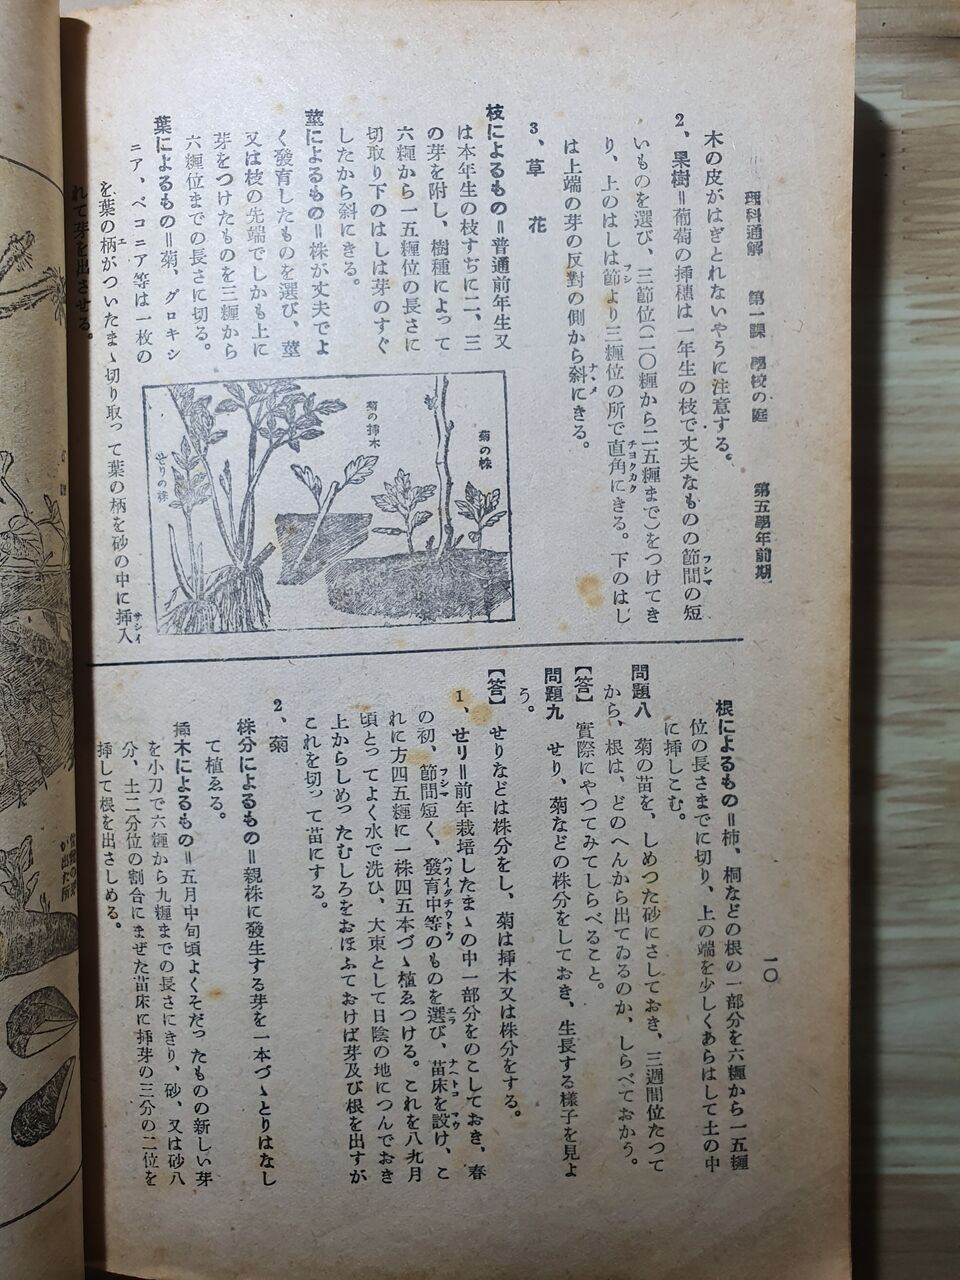 理科通解　第一課　學校の庭　第五學年前期
木の皮がはぎとれないやうに注意する。
2、果樹＝葡萄の挿穗は一年生の枝で丈夫なものの節間の短
いものを選び、三節位(二〇糎から二五糎まで)をつけてき
り、上のはしは節より三糎位の所で直角にきる。下のはし
は上端の芽の反對の側から斜にきる。
3、草花
枝によるもの＝普通前年生又
は本年生の枝すぢに二、三
の芽を附し、樹種によって
六糎から一五糎位の長さに
切取り下のはしは芽のすぐ
したから斜にきる。
莖によるもの＝株が丈夫でよ
く發育したものを選び、莖
又は枝の先端でしかも上に
芽をつけたものを三糎から
六糎位までの長さに切る。
葉によるもの＝菊、グロキシ
ニア、ベコニア等は一枚の
を葉の柄がついたまゝ切り取って葉の柄を砂の中に挿入
れて芽を出させる。
菊の株
菊の挿木
せりの株
一〇
根によるもの＝柿、桐などの根の一部分を六糎から一五糎
位の長さまでに切り、上の端を少しくあらはして土の中
に挿しこむ。
問題八　菊の苗を、しめつた砂にさしておき、三週間位たつて
から、根は、どのへんから出てゐるのか、しらべておかう。
【答】　實際にやつてみてしらべること。
問題九　せり、菊などの株分をしておき、生長する様子を見よ
う。
【答】　せりなどは株分をし、菊は挿木又は株分をする。
1、せリ＝前年栽培したまゝの中一部分をのこしておき、春
の初、節間短く、發育中等のものを選び、苗床を設け、こ
れに方四五糎に一株四五本づゝ植ゑつける。これを八九月
頃とってよく水で洗ひ、大束として日陰の地につんでおき
上からしめったむしろをおほふておけば芽及び根を出すが
これを切って苗にする。
2、菊
株分によるもの＝親株に發生する芽を一本づゝとりはなし
て植ゑる。
挿木によるもの＝五月中旬頃よくそだったものの新しい芽
を小刀で六糎から九糎までの長さにきり、砂、又は砂八
分、土二分位の割合にまぜた苗床に挿芽の三分の二位を
挿して根を出さしめる。